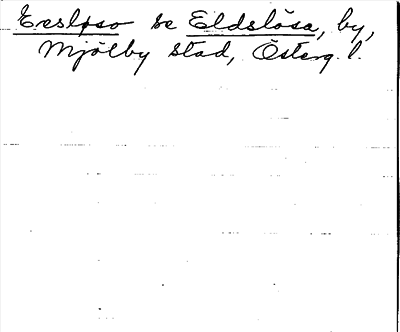 Eesløso se Eldslösa, by,
Mjölby stad, Österg. l.